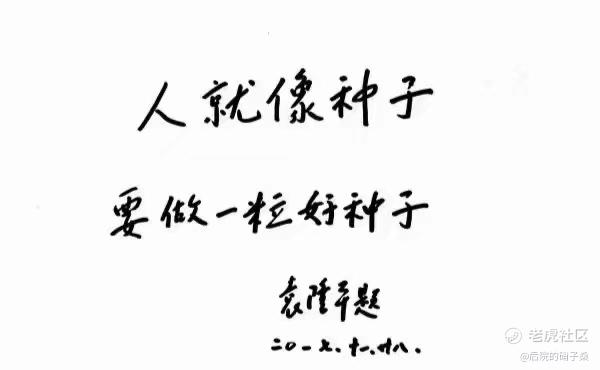 人就像种子
要做一粒好种子
袁隆平题
二〇一七.十一.廿八.
老虎社区
@后院的胡子桑